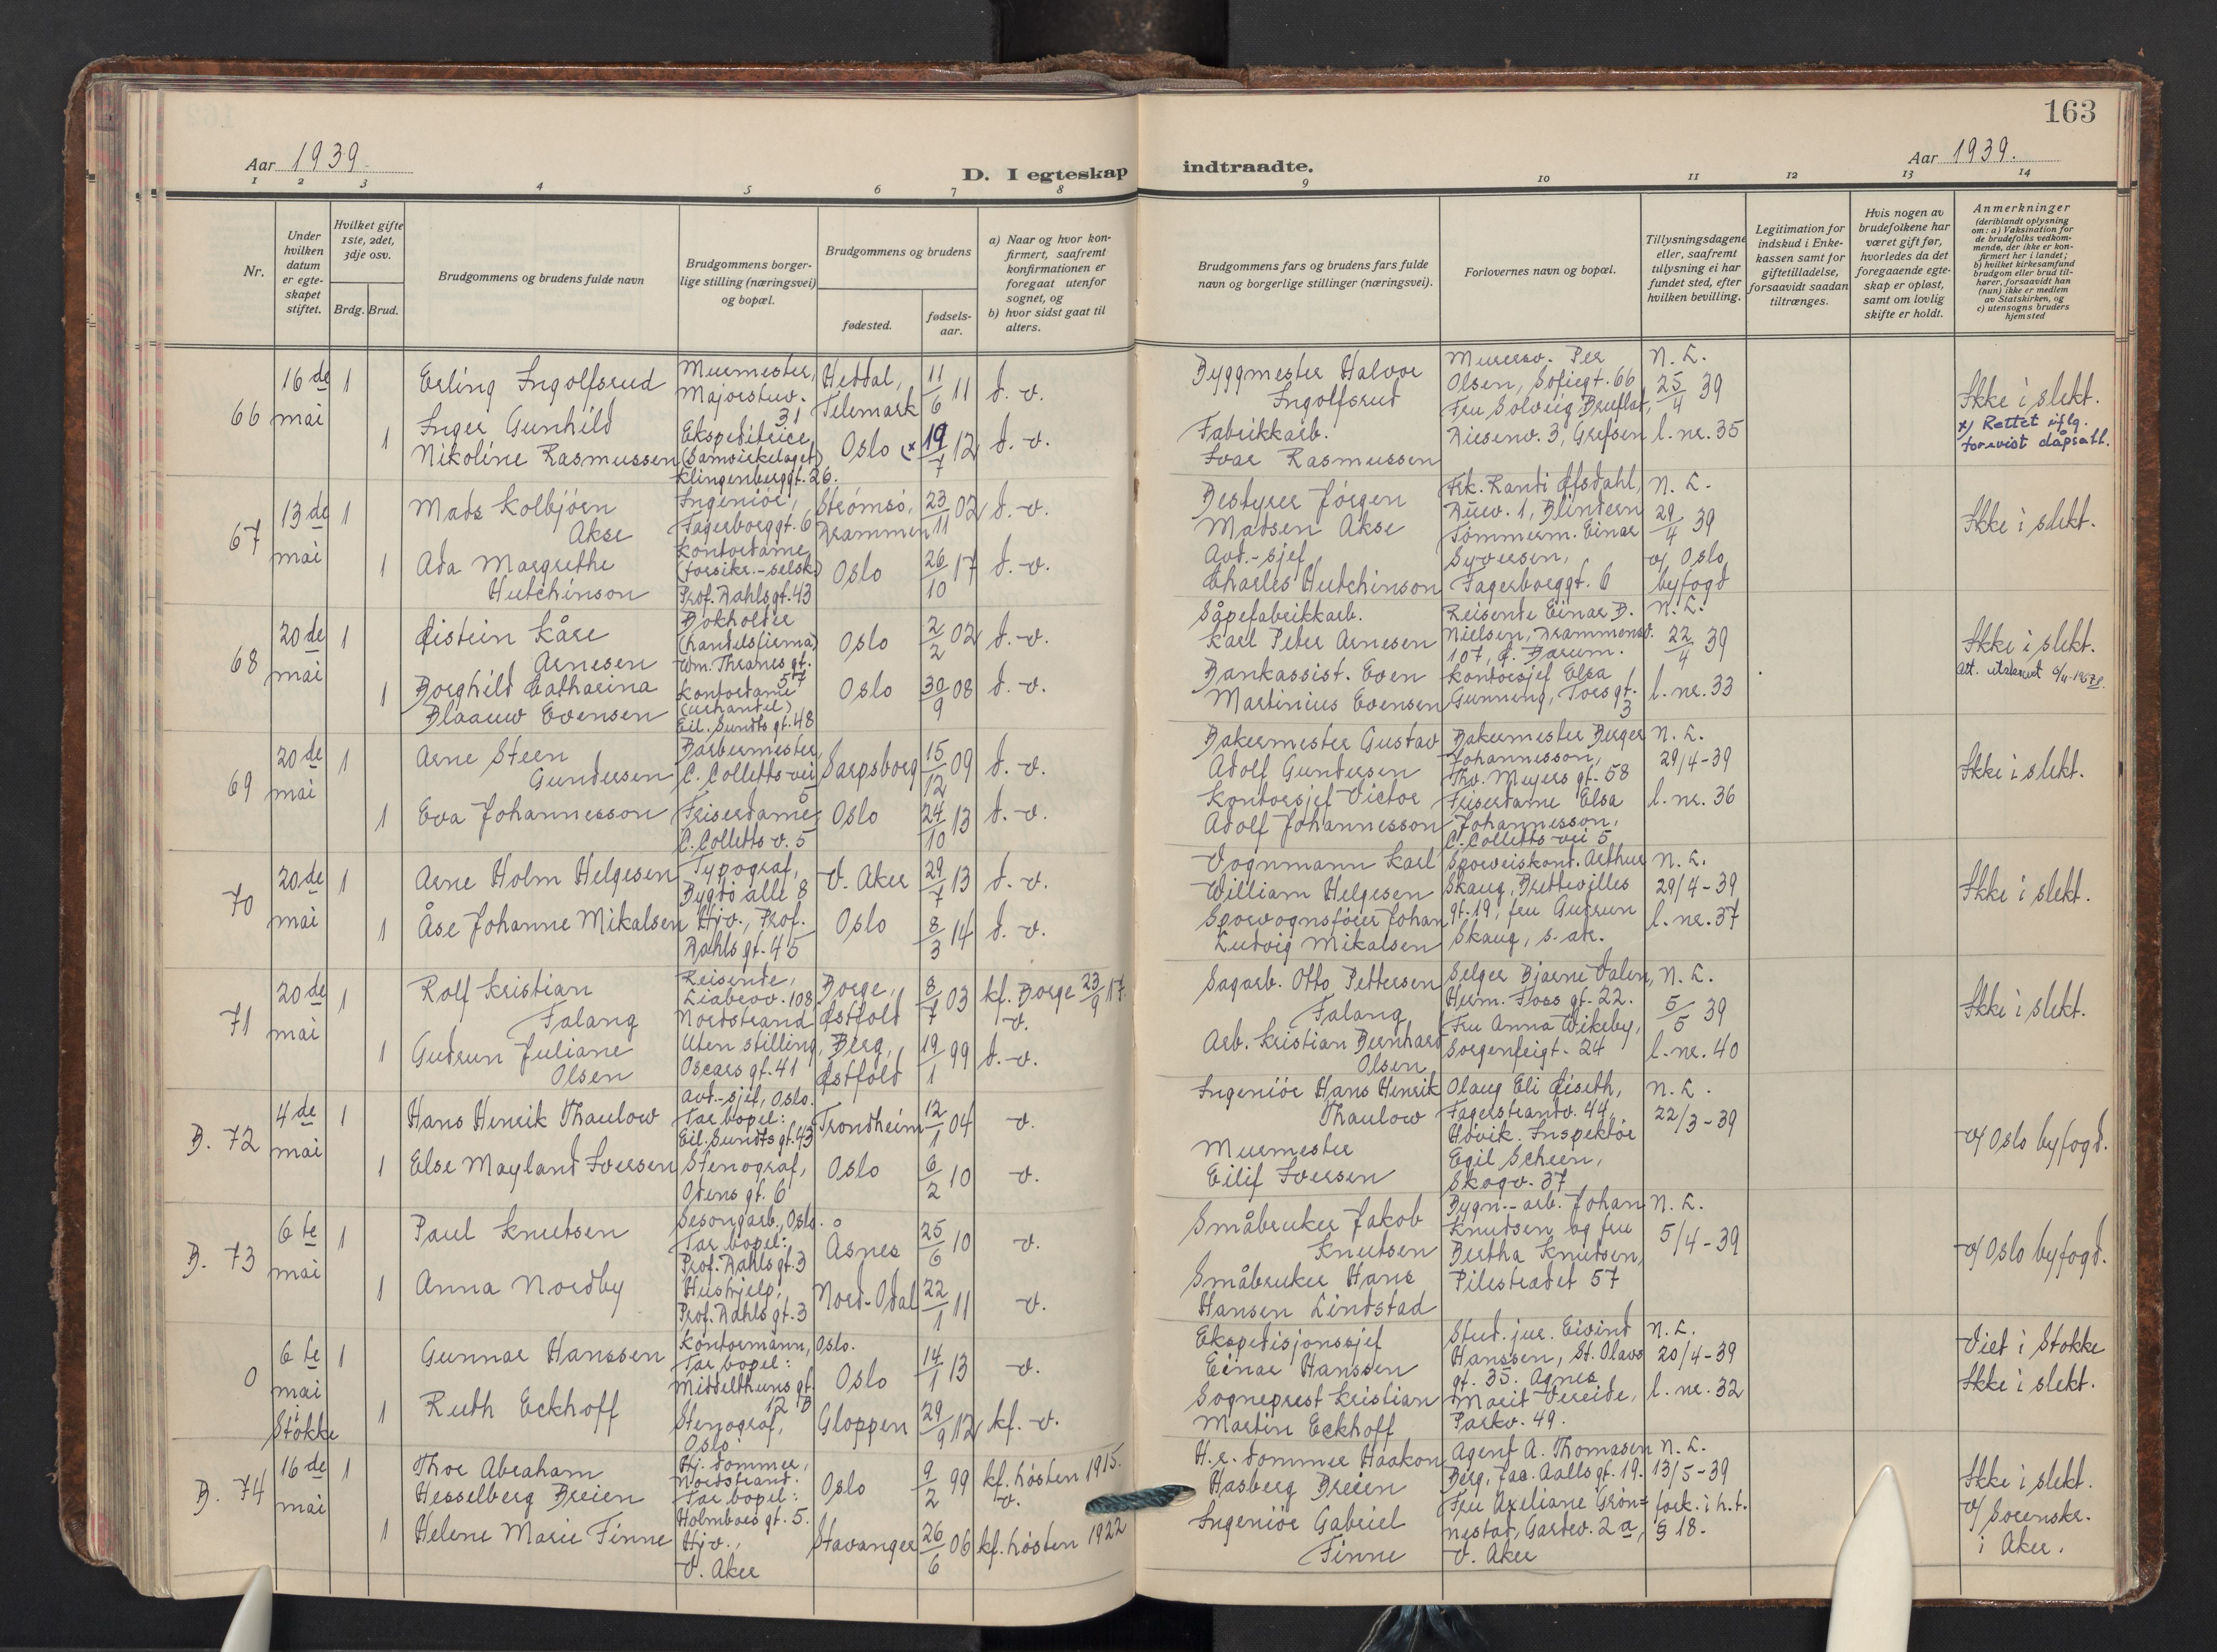 163
Aar 1939
D. I egteskap indtraadte.
Aar 1939.
1 2 3 4 5 6 7 8 9 10 11 12 13 14
Nr.
Under hvilken datum er egteskapet stiftet.
Hvilket gifte 1ste, 2det, 3dje osv.
Brdg. Brud.
Brudgommens og brudens fulde navn
Brudgommens borgerlige stilling (næringsvei) og bopæl.
Brudgommens og brudens
fødested.
fødselsaar.
a) Naar og hvor konfirmert, saafremt konfirmationen er foregaat utenfor sognet, og
b) hvor sidst gaat til alters.
Brudgommens fars og brudens fars fulde navn og borgerlige stillinger (næringsvei).
Forlovernes navn og bopæl.
Tillysningsdagene eller, saafremt tillysning ei har fundet sted, efter hvilken bevilling.
Legitimation for indskud i Enkekassen samt for giftetilladelse, forsaavidt saadan tiltrænges.
Hvis nogen av brudefolkene har været gift før, hvorledes da det foregaaende egteskap er opløst, samt om lovlig skifte er holdt.
Anmerkninger
(deriblandt oplysning om: a) Vaksination for de brudefolks vedkommende, der ikke er konfirmert her i landet; b) hvilket kirkesamfund brudgom eller brud tilhører, forsaavidt han (hun) ikke er medlem av Statskirken, og c) utensogns bruders hjemsted
66
16de mai
1
Erling Ingolfsrud
Murmester, Majorstuv. 31
Heddal, Telemark
11/6 11
d. v.
Byggmester Halvor Ingolfsrud
Olsen, Sofiegt. 66
Fru Solveig Bruflat,
N. L.
25/4 39
Ikke i slekt.
1
Inger Gunhild
Nikoline Rasmussen
Ekspeditrice,
(Samvirkelaget)
Klingenberggt. 26.
Oslo (x
19/7 12
d. v.
Fabrikkarb.
Ivar Rasmussen
Diesenv. 3, Grefsen
l. nr. 35
x) Rettet iflg.
forevist dåpsatt.
67
13de mai
1
Mads Kolbjørn
Akse
Ingeniør,
Fagerborggt. 6
Strømsø,
Drammen
23/11 02
d. v.
Bestyrer Jørgen
Madsen Akse
Frk. Randi Ofsdahl,
1, Blindern
Tømmerm. Einar
N. L.
29/4 39
Ikke i slekt.
1
Ada Margrethe
Hutchinson
Kontordame
(forsikr.-selsk.)
Prof. Dahlsgt. 43
Oslo
26/10 17
d. v.
Avd.-sjef
Charles Hutchinson
Syversen,
Fagerborggt. 6
v/ Oslo
byfogd
68
20de mai
1
Øistein Kåre
Arnesen
Bokholder
(handelsfirma)
Wm. Thranes gt.
57
Oslo
2/2 02
d. v.
Såpefabrikkarb.
Karl Peter Arnesen
Reisende Einar B.
Nielsen, Drammensv.
107, Ø. Bærum.
N. L.
22/4 39
Ikke i slekt.
1
Borghild Catharina
Blaauw Evensen
Kontordame
(urhandel)
Eil. Sundts gt. 48
Oslo
30/9 08
d. v.
Bankassist. Even
Martinius Evensen
Kontorsjef Elsa
Gunneng, Torsgt.
3
l. nr. 33
69
20de mai
1
Arne Steen
Gundersen
Barbermester
C. Colletts vei
5
Sarpsborg
15/12 09
d. v.
Bakermester Gustav
Adolf Gundersen
Bakermester Birger
Johannesson,
Thv. Meyers gt. 58
N. L.
29/4-39
Ikke i slekt.
1
Eva Johannesson
Frisørdame
C. Colletts v. 5
Oslo
24/10 13
d. v.
Kontorsjef Victor
Adolf Johannesson
Frisørdame Elsa
Johannesson,
C. Colletts vei 5
l. nr. 36
70
20de mai
1
Arne Holm Helgesen
Typograf,
Bygdø alle 8
V. Aker
29/7 13
d. v.
Vognmann Karl
William Helgesen
Sporveiskont. Arthur
Skaug, Brettevilles
N. L.
29/4-39
Ikke i slekt.
1
Åse Johanne Mikalsen
Hjv., Prof.
Dahls gt. 45
Oslo
8/3 14
d. v.
Sporvognsfører Johan
Ludvig Mikalsen
gt. 19; fru Gudrun
Skaug, s. adr.
l. nr. 37
71
20de mai
1
Rolf Kristian
Falang
Reisende,
Liabrov. 108
Nordstrand
Borge,
Østfold
8/7 03
kf. Borge 23/9 17.
v.
Sagarb. Otto Pettersen
Falang
Selger Bjarne Dalen,
Herm. Foss gt. 22.
Fru Anna Wikeby,
N. L.
5/5 39
Ikke i slekt.
1
Gudrun Juliane
Olsen
Uten stilling,
Oscars gt. 41
Berg,
Østfold
19/1 99
d. v.
Arb. Kristian Bernhard
Olsen
Sorgenfrigt. 24
l. nr. 40
B. 72
4de mai
1
Hans Henrik Thaulow
Avd.-sjef, Oslo.
Tar bopel:
Eil. Sundts gt. 43
Trondheim
12/1 04
v.
Ingeniør Hans Henrik
Thaulow
Olaug Eli Øiseth,
Fagerstrandv. 44,
Høvik. Inspektør
N. L.
22/3-39
v/ Oslo byfogd.
1
Else Mayland Iversen
Stenograf,
Odins gt. 6
Oslo
6/2 10
v.
Murmester
Eilif Iversen
Egil Scheen,
Skogv. 37
B. 73
6te mai
1
Paul Knutsen
Sesongarb., Oslo.
Tar bopel:
Prof. Dahls gt. 3
Åsnes
25/6 10
v.
Småbruker Jakob
Knutsen
Bygn.-arb. Johan
Knudsen og fru
Bertha Knudsen,
N. L.
5/4-39
v/ Oslo byfogd.
1
Anna Nordby
Hushjelp,
Prof. Dahls gt. 3
Nord-Odal
22/1 11
v.
Småbruker Hans
Hansen Lindstad
Pilestredet 57
0
6te mai
i Stokke
1
Gunnar Hanssen
Kontormann, Oslo.
Tar bopel:
Middelthuns gt.
12 B
Oslo
14/1 13
v.
Ekspedisjonssjef
Einar Hanssen
Stud. jur. Eivind
Hanssen, St. Olavs
gt. 35. Agnes
N. L.
20/4-39
Viet i Stokke
Ikke i slekt.
1
Ruth Eckhoff
Stenograf,
Oslo
Gloppen
29/9 12
kf. v.
Sogneprest Kristian
Martin Eckhoff
Marit Vereide,
Parkv. 49.
l. nr. 32
B. 74
16de mai
1
Thor Abraham
Hesselberg Breien
Hj. dommer,
Nordstrand.
Tar bopel:
Holmboes gt. 5.
Oslo
9/2 99
kf. høsten 1915.
v.
H. r. dommer Haakon
Hasberg Breien
Agent A. Thomasen
Berg, Jac. Aalls gt. 19.
N. L.
13/5-39
Ikke i slekt.
1
Helene Marie Finne
Hjv.,
V. Aker
Stavanger
26/6 06
kf. høsten 1922
Ingeniør Gabriel
Finne
Fru Axeliane Grøn=
nestad, Gardev. 2a,
V. Aker
fork. i h.t.
§ 18.
v/ Sorenskr.
i Aker.